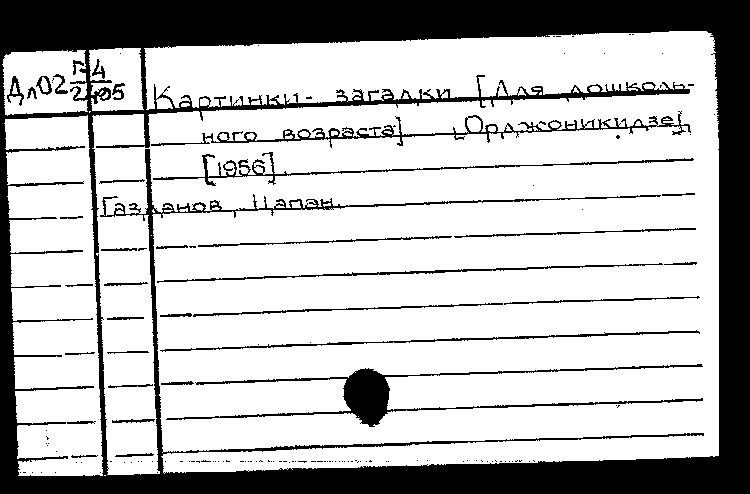 Дл02 Г-4
Картинки- загадки [Для дошколь-
ного возраста] [Орджоникидзе],
[1956].
Газданов, Цапан.